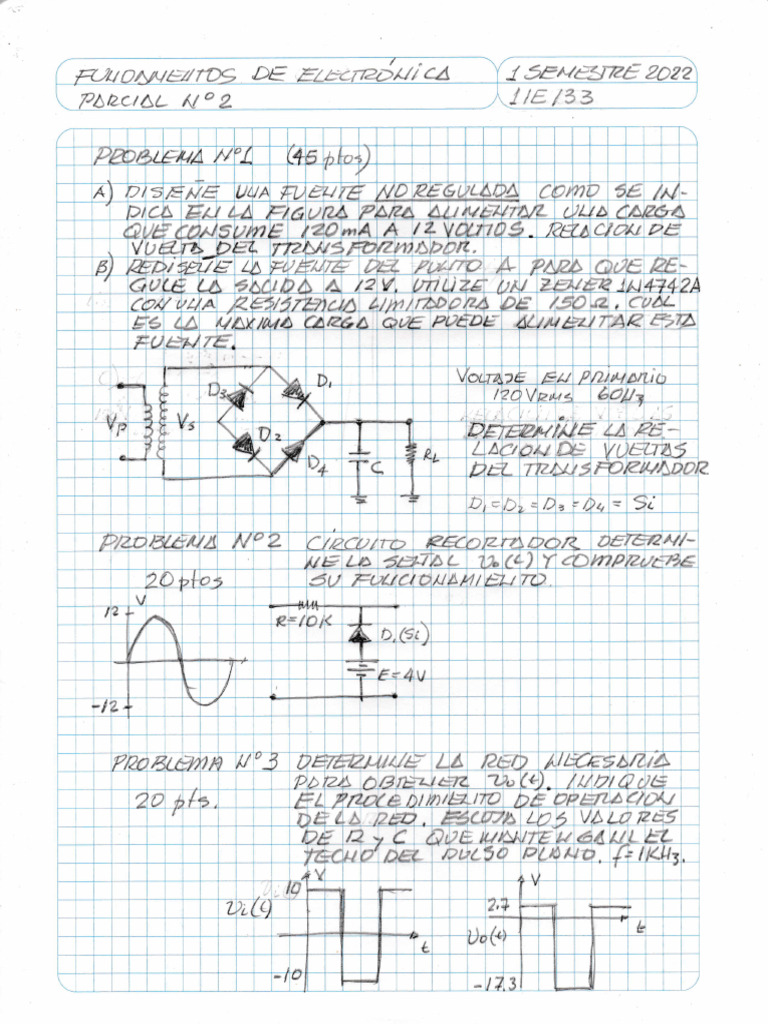 FUNDAMENTOS DE ELECTRÓNICA
1 SEMESTRE 2022
PARCIAL Nº2
1IE133
PROBLEMA Nº1 (45 ptos)
A) DISEÑE UNA FUENTE NO REGULADA COMO SE IN-
DICA EN LA FIGURA PARA ALIMENTAR UNA CARGA
QUE CONSUME 120mA A 12 VOLTIOS. RELACION DE
VUELTA DEL TRANSFORMADOR.
B) REDISEÑE LA FUENTE DEL PUNTO A PARA QUE RE-
GULE LA SALIDA A 12V. UTILIZE UN ZENER 1N4742A
CON UNA RESISTENCIA LIMITADORA DE 150Ω. CUAL
ES LA MAXIMA CARGA QUE PUEDE ALIMENTAR ESTA
FUENTE.
VOLTAJE EN PRIMARIO
120VRMS 60Hz
DETERMINE LA RE-
LACION DE VUELTAS
DEL TRANSFORMADOR
D1=D2=D3=D4= Si
Vp
Vs
D3
D1
D2
D4
C
RL
PROBLEMA Nº2 CÍRCUITO RECORTADOR DETERMI-
NE LA SEÑAL Vo(t) Y COMPRUEBE
20 ptos
SU FUNCIONAMIENTO.
12
V
-12
R=10K
D1(Si)
E=4V
PROBLEMA Nº3 DETERMINE LA RED NECESARIA
PARA OBTENER Vo(t). INDIQUE
20 pts.
EL PROCEDIMIENTO DE OPERACION
DE LA RED. ESCOJA LOS VALORES
DE R y C QUE MANTENGAN EL
TECHO DEL PULSO PLANO. f=1KHz.
V
10
Vi(t)
t
-10
V
2.7
Vo(t)
t
-17.3